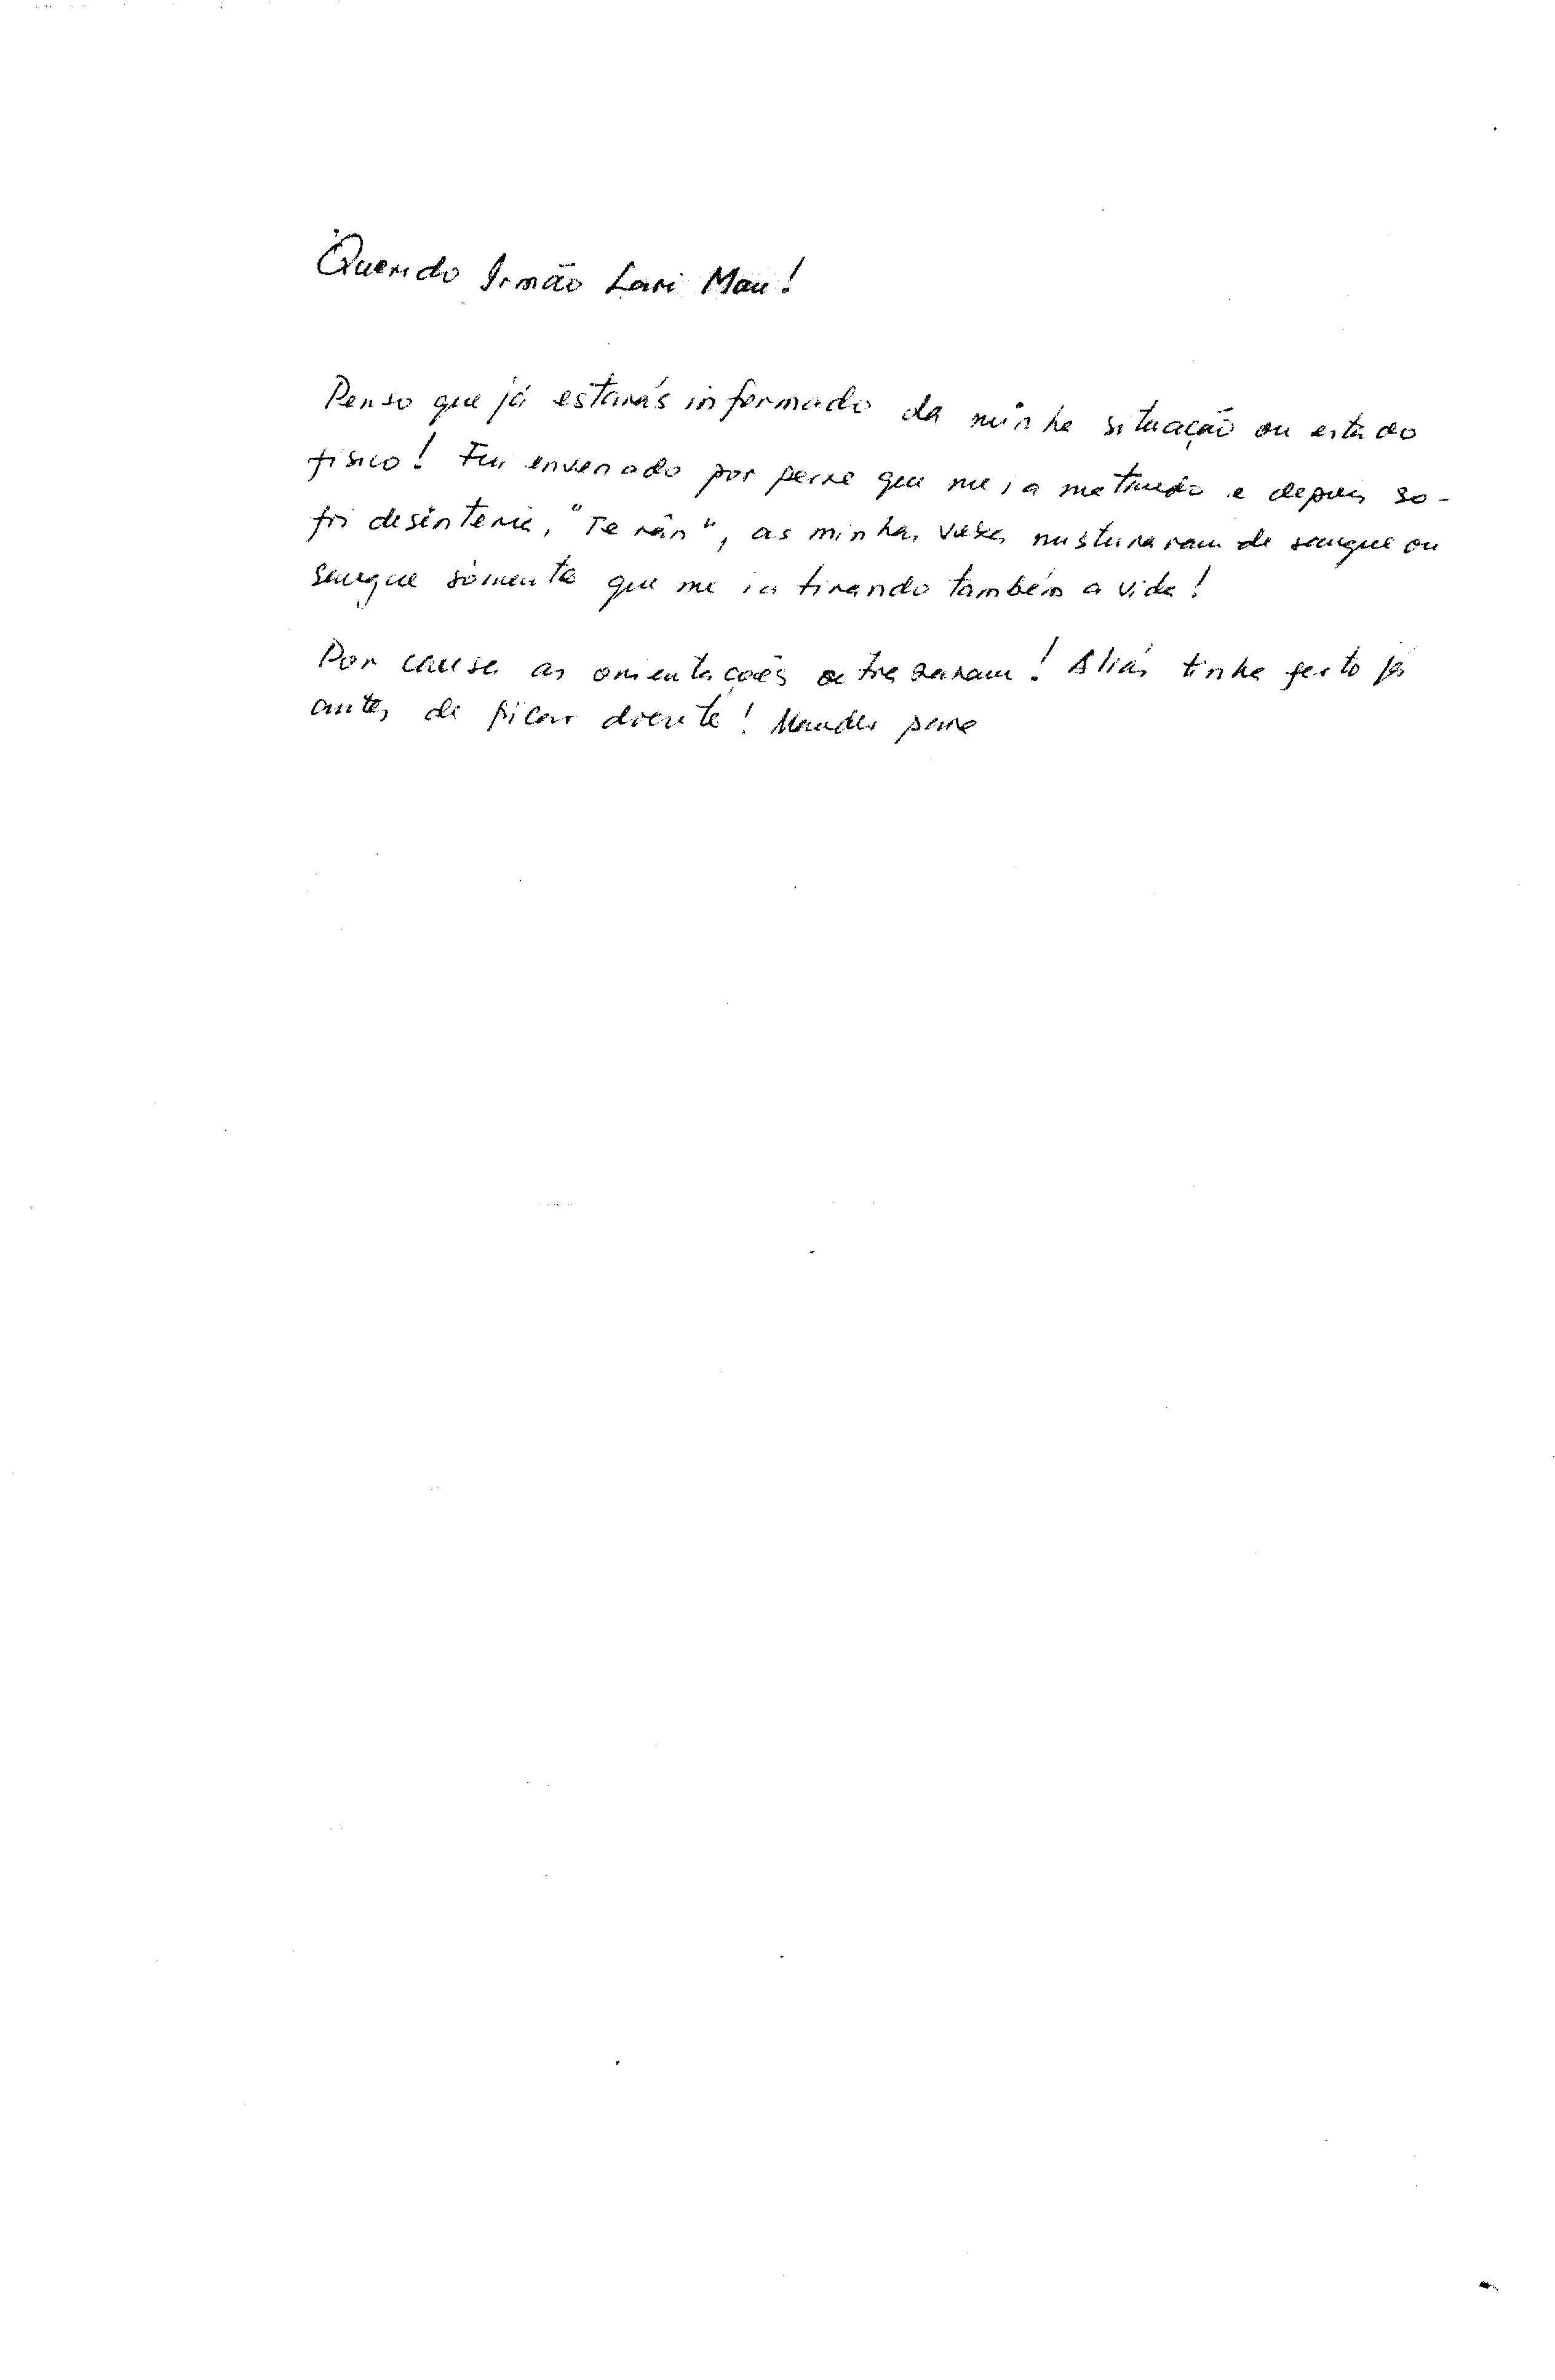 Querido Irmão Lari Mau!
Penso que já estarás informado da minha situação ou estado
físico! Fui envenado por peixe que me ia matando e depois so-
fri desinteria, "Te rân", as minhas vezes misturaram de sangue ou
sangue sòmente que me ia tirando também a vida!
Por causa as orientações atrazaram! Aliás tinha feito já
antes de ficar doente! Mandei para